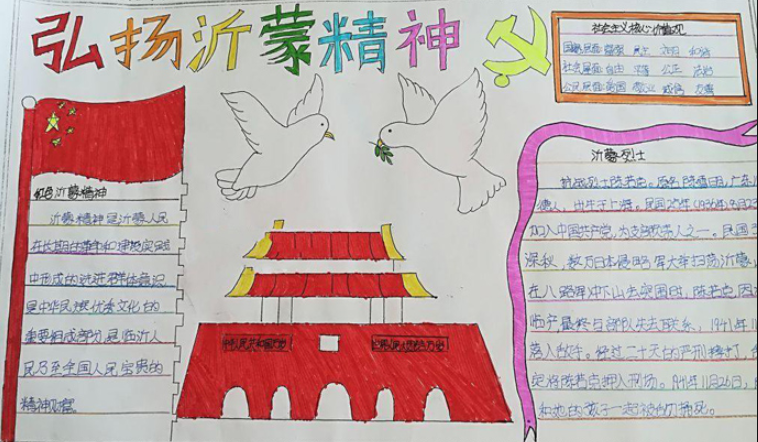 弘扬沂蒙精神
社会主义核心价值观
国家层面:富强 民主 文明 和谐
社会层面:自由 平等 公正 法治
公民层面:爱国 敬业 诚信 友善
红色沂蒙精神
沂蒙精神是沂蒙人民
在长期的革命和建设实践
中形成的先进群体意识
是中华民族优秀文化的
重要组成部分,是临沂人
民乃至全国人民宝贵的
精神财富。
中华人民共和国万岁
世界人民大团结万岁
沂蒙烈士
抗战烈士陈若克。原名陈雪明,广东
德人,出生于上海。民国25年(1936年)8月23
加入中国共产党,为支部负责人之一。民国3
深秋,数万日本侵略军大举扫荡沂蒙
在八路军冲下山去突围时,陈若克因
临产最终与部队失去联系。1941年11
落入敌手。经过二十天的严刑拷打,
定将陈若克押入刑场。1941年11月26日,
和她的孩子一起被 刺死。